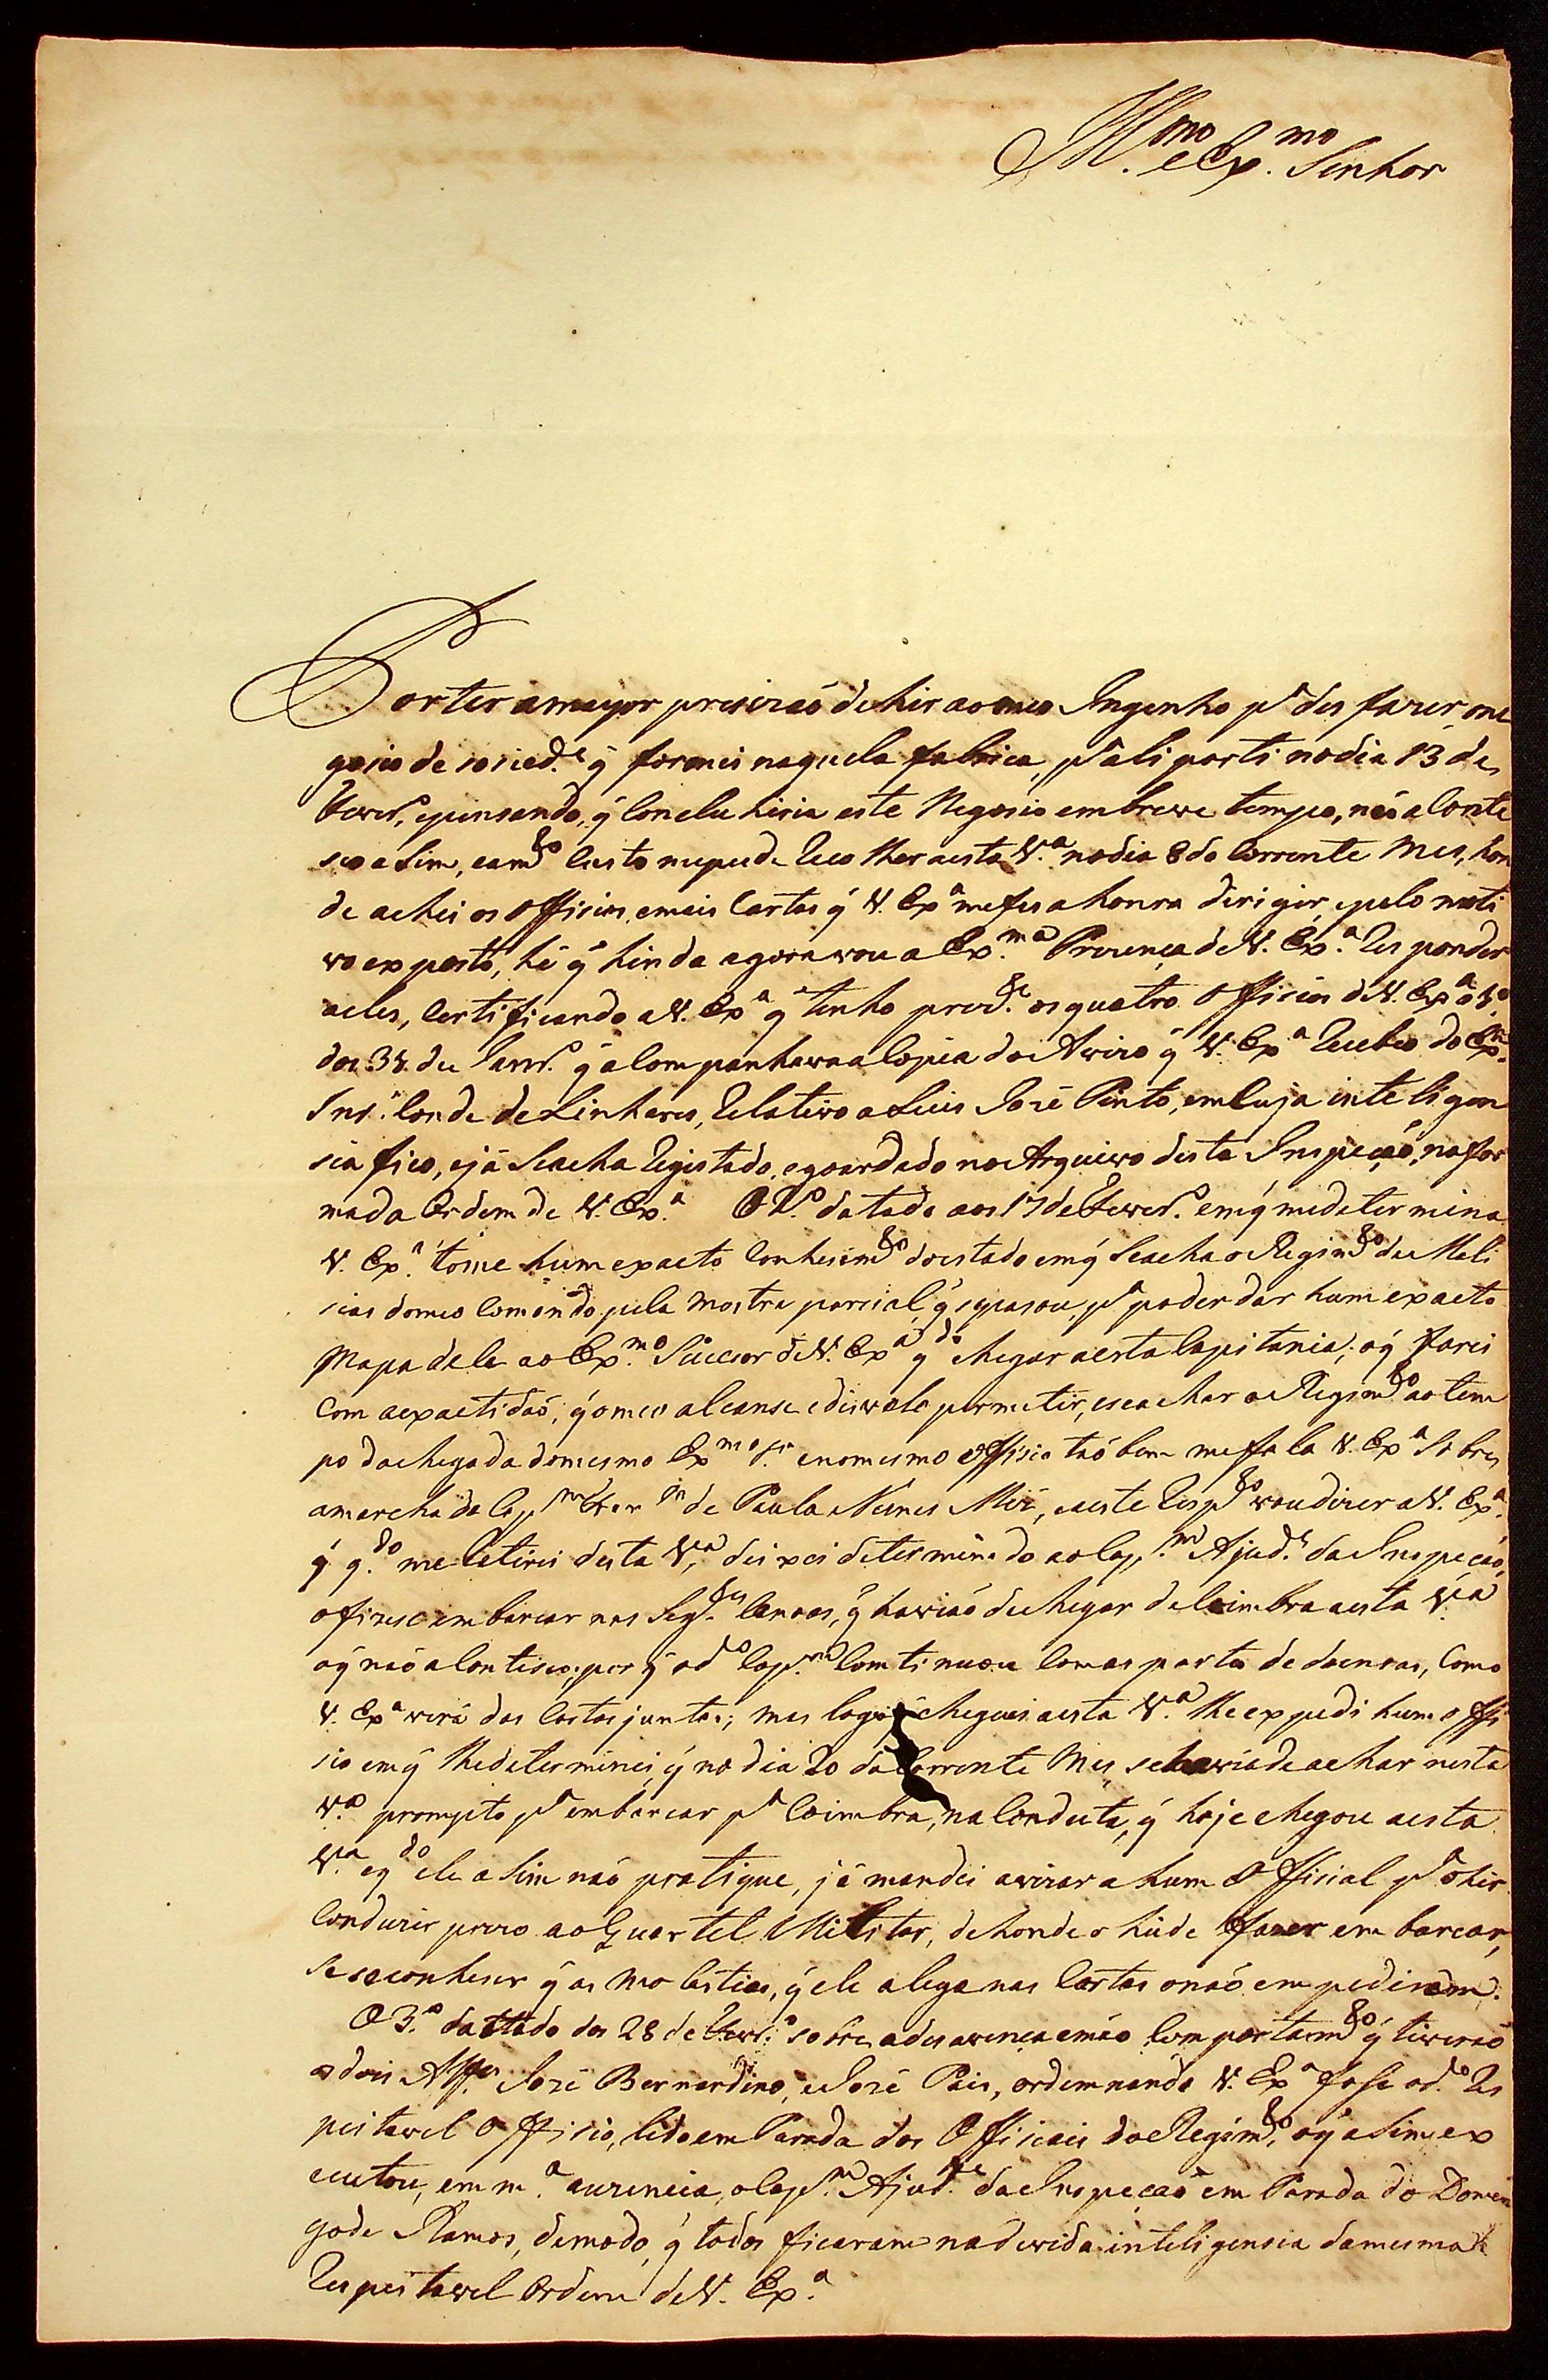 Ill.mo e Ex.mo Senhor
Por ter a mayor presizaõ de hir ao meo Ingenho p.a desfazer o ne
gosio de sosied.e q̃ formei naquela fabrica, p.a ali parti no dia 13 de
Fever.o, e pensando, q̃ Concluhiria este Negosio em breve tempo, naõ aConte
seo aSim, e a m.to Custo me pude ReColher a esta V.a no dia 8 do Corrente Mes, hon
de achei os Officios, e mais Cartas q̃ V. Ex.a me fes a honra dirigir, e pelo moti
vo exposto, hé q̃ hinda agora vou a Ex.ma Prezença de V. Ex.a Responder
a eles, Certificando a V. Ex.a q̃ tenho prez.te os quatro Officios de V. Ex.a o 1.o
dos de Janr.o q̃ aCompanhava a Copia do Avizo q̃ V. Ex.a Recebeo do Ex.mo
Snr. Conde de Linhares, Relativo a Luis José Pinto, em Cuja inteligen
sia fico, e já Se acha Registado, e goardado no Arquivo desta Inspeçaõ, na for
ma da Ordem de V. Ex.a O 2.o datado aos 17 de Fever.o em q̃ me determina
V. Ex.a tome hum exacto Conhesim.to do estado em q̃ Se acha o Regim.to de Meli
sias do meo Comando, pela Mostra parsial, q̃ se pasou, p.a poder dar hum exacto
Mapa dele ao Ex.mo Sucesor de V. Ex.a q.do chegar a esta Capitania; o q̃ farei
Com a exactidaõ, q̃ o meo alcanse e disvelo permetir, e se achar o Regim.to ao tem
po da chegada do mesmo Ex.mo Sr. e no mesmo Offisio taõ bem me fala V. Ex.a Sobre
a marcha do Cap.m Fran.co de Paula Nunes Moz, e a este Resp.to vou dizer a V. Ex.a
q̃ q.do me Retirei desta V.a deixei determinado ao Cap.m Ajud.e da Inspeçaõ,
o fizese embarcar nas Seg.tes Canoas, q̃ haviaõ de chegar de Coimbra a esta V.a
o q̃ naõ aContiseo; por q̃ o d.o Cap.m Continuou Com as partes de doensas, Como
V. Ex.a verá das Cartas juntas; mas logo q̃ cheguei a esta V.a lhe expedi hum offi
sio em q̃ lhe determinei, q̃ no dia 20 do Corrente Mes se havia de achar nesta
V.a prompto p.a embarcar p.a Coimbra, na Conducta, q̃ hoje chegou a esta
V.a e q.do ele aSim naõ pratique, já mandei avizar a hum Offisial p.a o hir
Conduzir prezo ao Quartel Militar, de honde o hi de fazer embarcar,
Se se conheser q̃ as Molestias, q̃ ele alega nas Cartas o naõ empedirem.
O 3.o dattado dos 28 de Fever.o sobre a desavença e máo Comportam.to q̃ tiveraõ
os dois Alf.es José Bernardino, e José Pais, ordemnando V. Ex.a foSe o d.o Res
peitavel Offisio, lido em Parada dos Offisiais do Regim.to, o q̃ aSim ex
ecutou, em m.a auzencia, o Cap.m Ajud.e da Inspeçaõ em Parada do Domin
go de Ramos, de modo, q̃ todos ficaram na devida inteligensia da mesma
Respeitavel Ordem de V. Ex.a